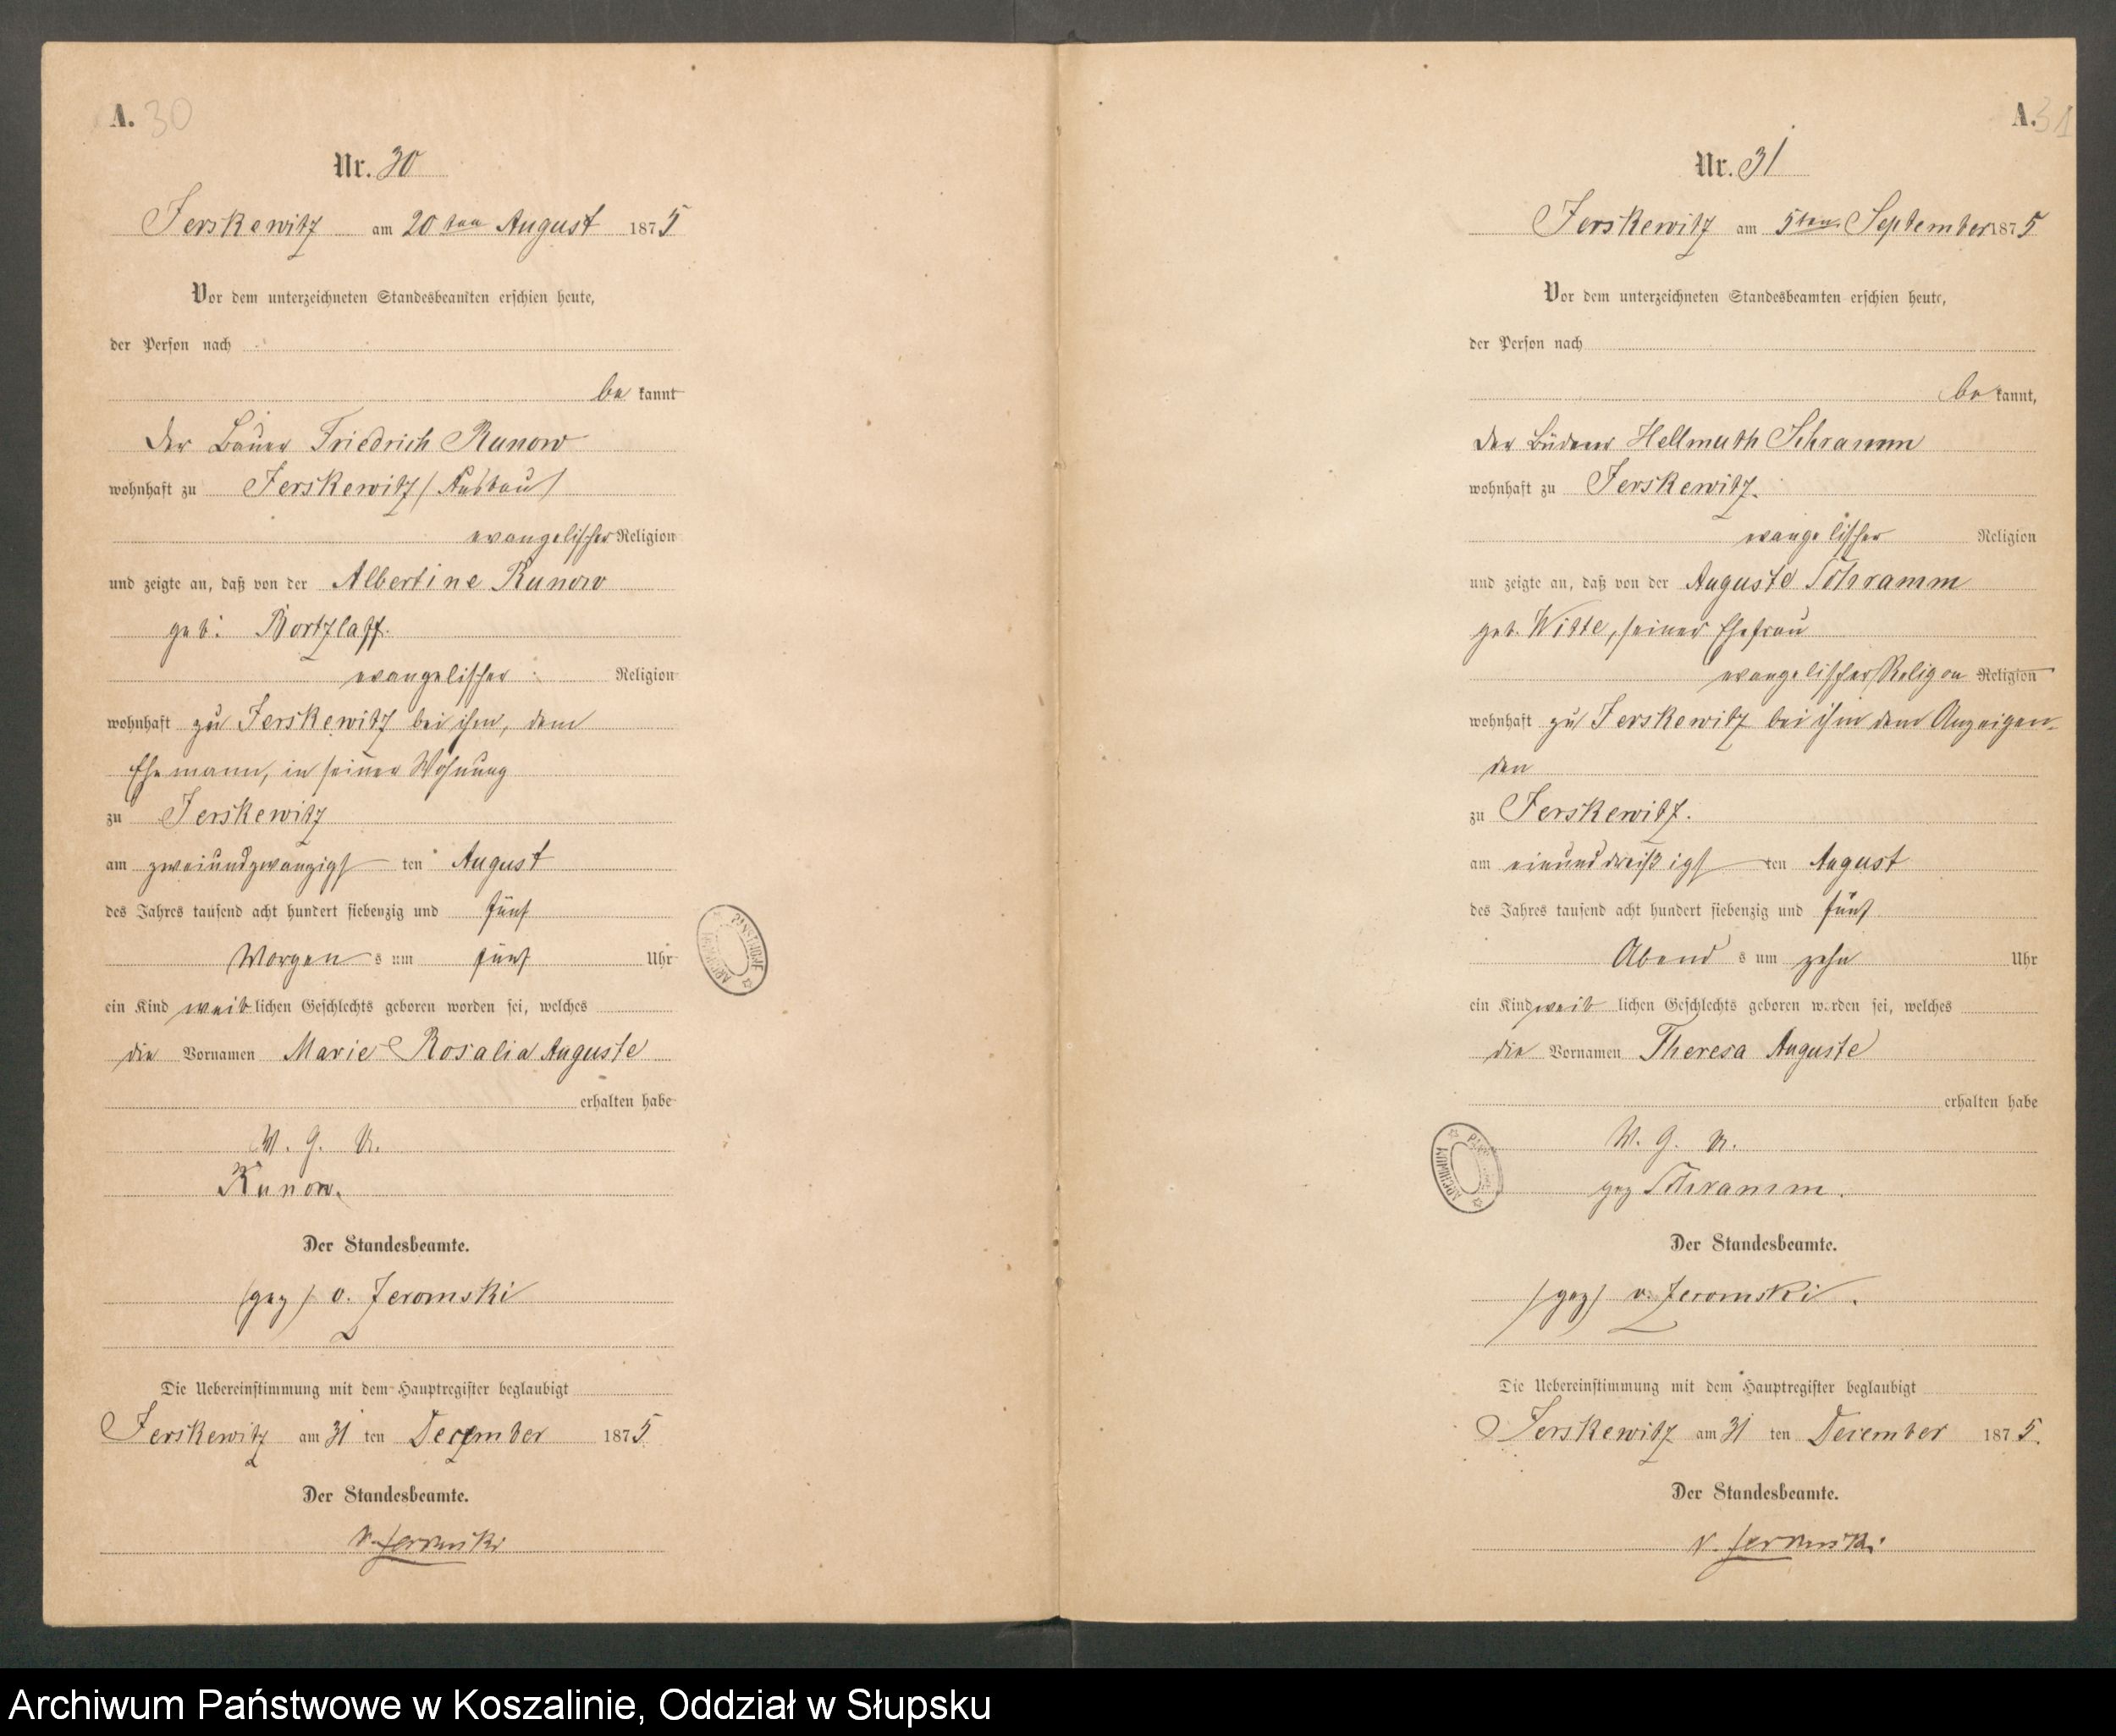 A. 30
Nr. 30
Jerskewitz am 20ten August 1875
Vor dem unterzeichneten Standesbeamten erschien heute,
der Person nach
be kannt
der Bauer Friedrich Runow
wohnhaft zu Jerskewitz (Ausbau)
evangelischer Religion
und zeigte an, daß von der Albertine Runow
geb: Bortzlaff.
evangelischer Religion
wohnhaft zu Jerskewitz bei ihm, dem
Ehemann, in seiner Wohnung
zu Jerskewitz
am zweiundzwanzigs ten August
des Jahres tausend acht hundert siebenzig und fünf
Morgen s um fünf Uhr
ein Kind weib lichen Geschlechts geboren worden sei, welches
die Vornamen Marie Rosalia Auguste
erhalten habe
V. G. U.
Runow.
Der Standesbeamte.
(gez) v. Jeromski
Die Uebereinstimmung mit dem Hauptregister beglaubigt
Jerskewitz am 31 ten December 1875
Der Standesbeamte.
v. Jeromski
A. 31
Nr. 31
Jerskewitz am 5ten September 1875
Vor dem unterzeichneten Standesbeamten erschien heute,
der Person nach
be kannt,
der Büdner Hellmuth Schramm
wohnhaft zu Jerskewitz.
evangelischer Religion
und zeigte an, daß von der Auguste Schramm
geb. Witte, seiner Ehefrau
evangelischer Religion Religion
wohnhaft zu Jerskewitz bei ihm dem Anzeigen-
den
zu Jerskewitz.
am einunddreißigs ten August
des Jahres tausend acht hundert siebenzig und fünf
Abend s um zehn Uhr
ein Kind weib lichen Geschlechts geboren worden sei, welches
die Vornamen Theresa Auguste
erhalten habe
V. G. U.
gez Schramm.
Der Standesbeamte.
(gez) v. Jeromski.
Die Uebereinstimmung mit dem Hauptregister beglaubigt
Jerskewitz am 31 ten December 1875.
Der Standesbeamte.
v. Jeromski
Archiwum Państwowe w Koszalinie, Oddział w Słupsku